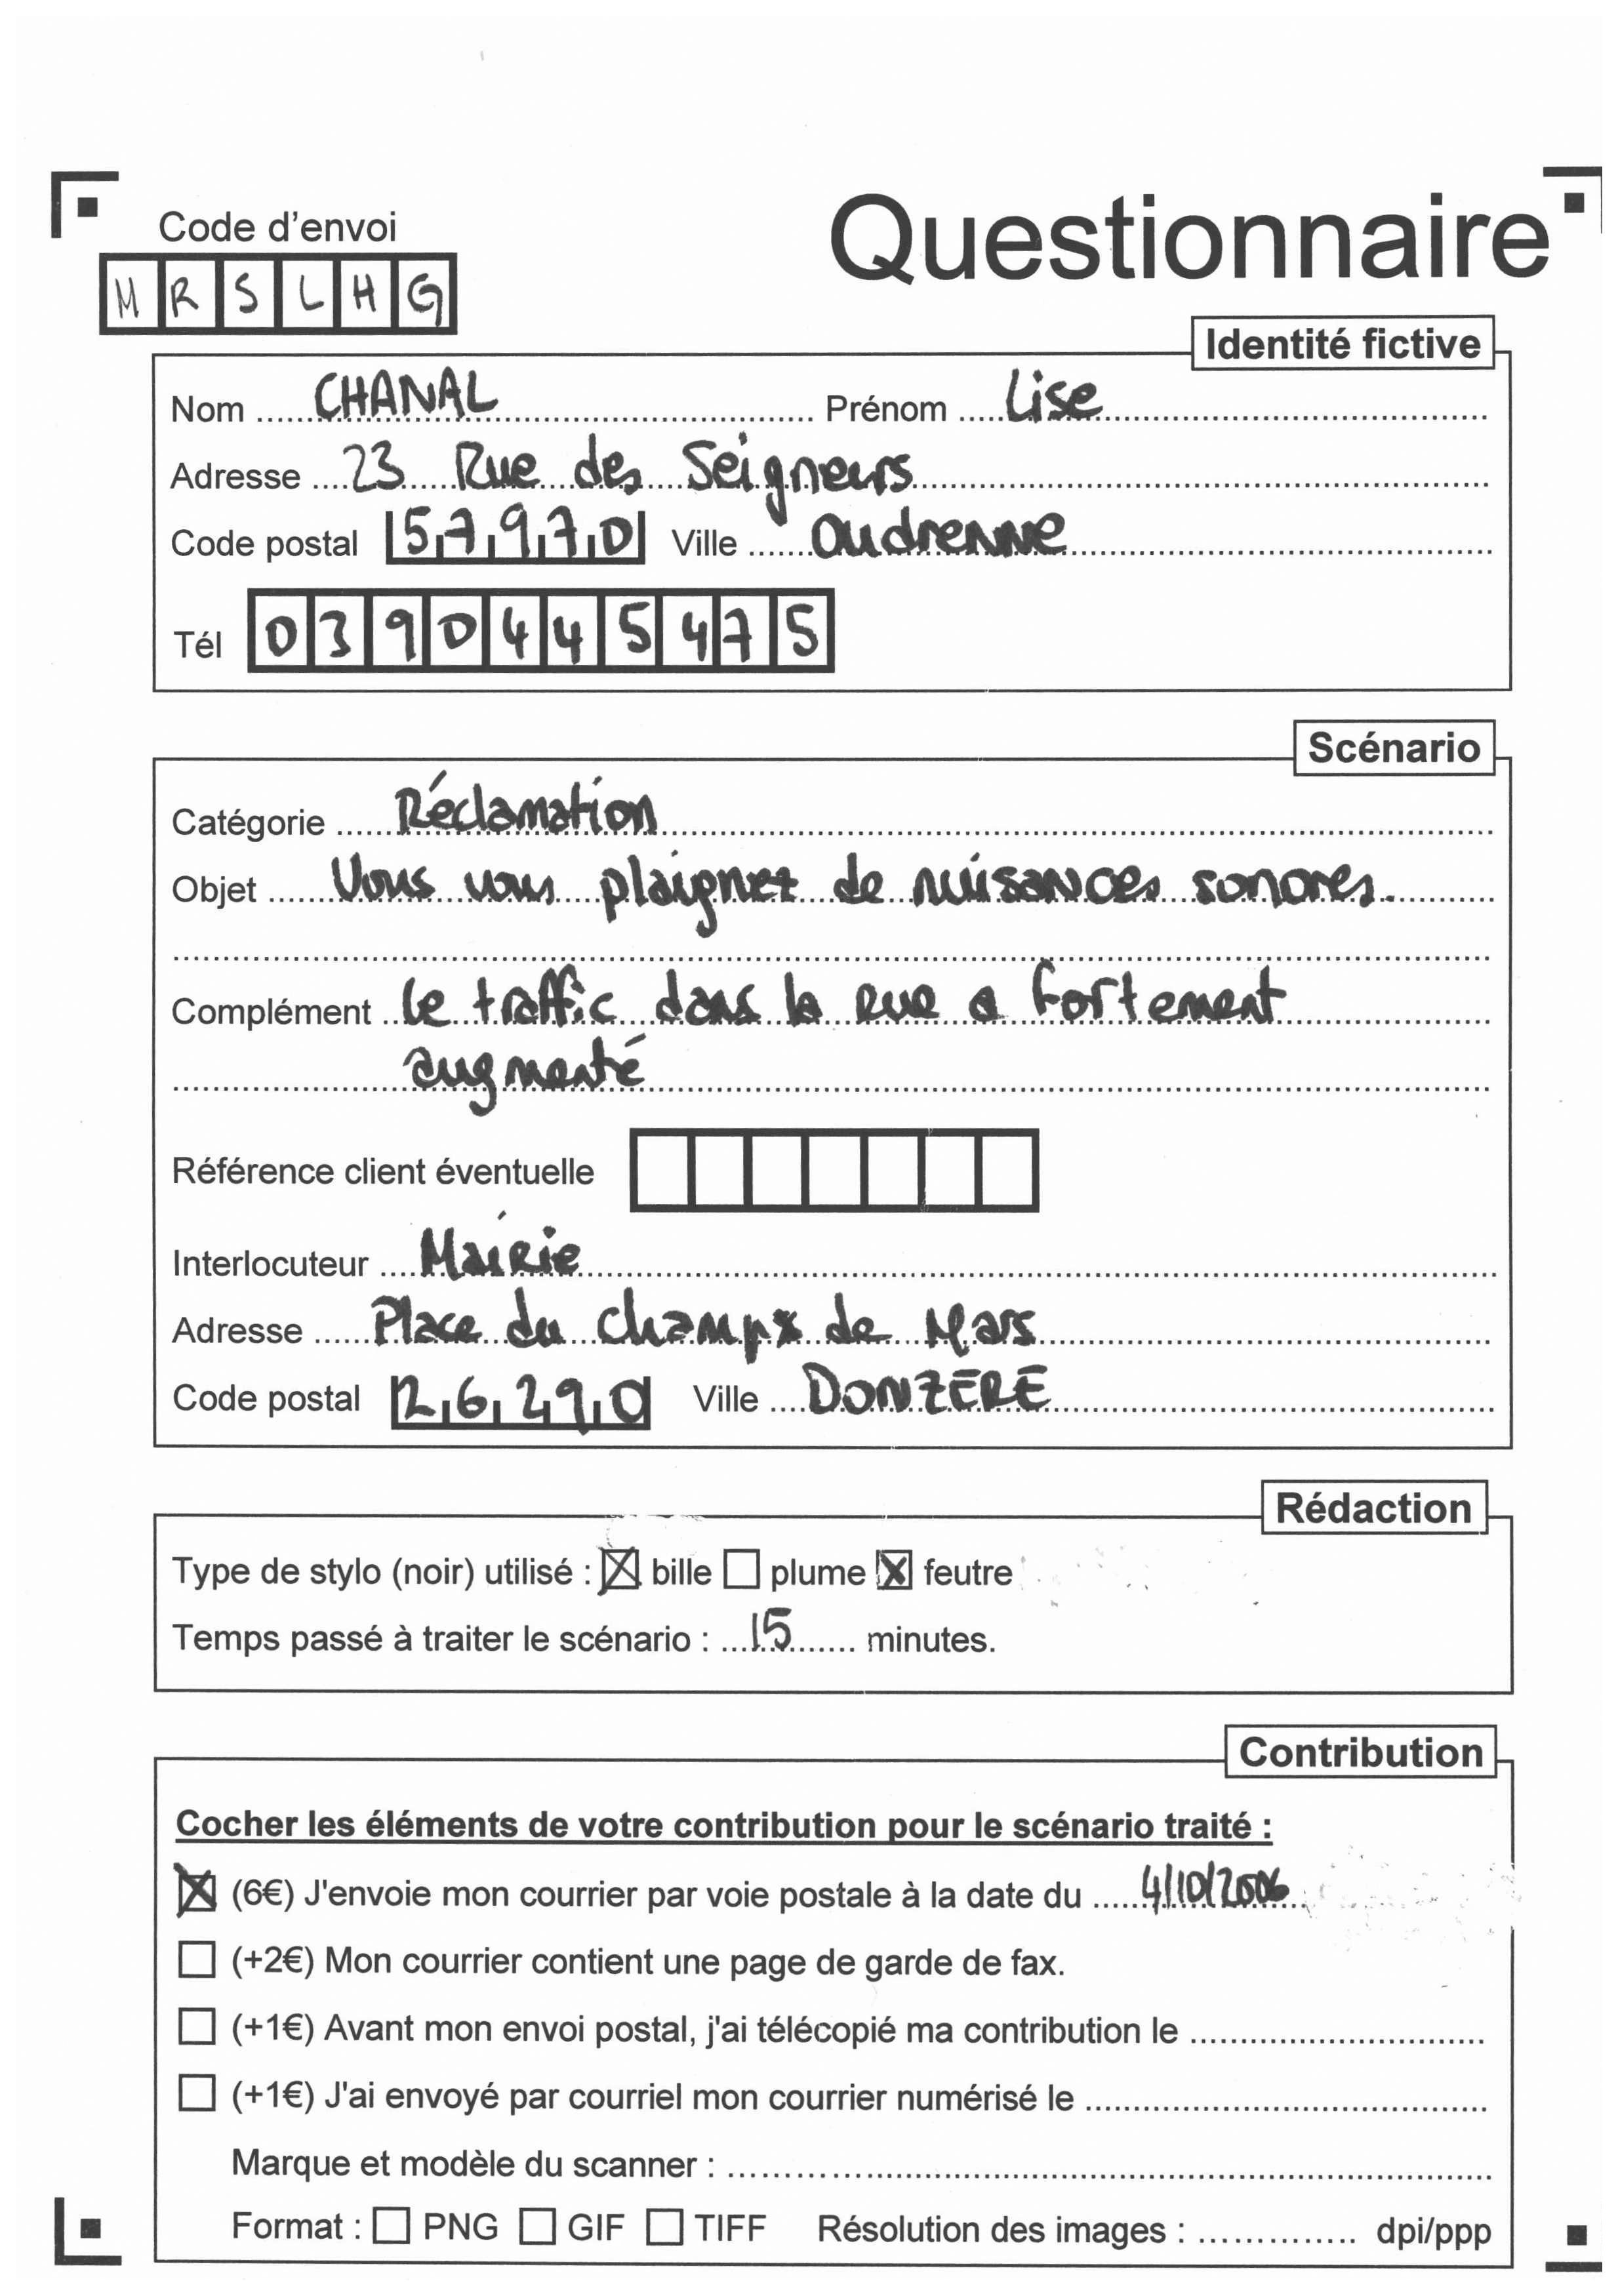 Questionnaire
Code d'envoi
MRSLHG
Identité fictive
Nom CHANAL Prénom Lise
Adresse 23 Rue des Seigneurs
Code postal 57970 Ville Oudrenne
Tél 0390445475
Scénario
Catégorie Réclamation
Objet Vous vous plaignez de nuisances sonores.
Complément le traffic dans la rue a fortement
augmenté
Référence client éventuelle
Interlocuteur Mairie
Adresse Place du champs de Mars
Code postal 26290 Ville DONZERE
Rédaction
Type de stylo (noir) utilisé : bille plume feutre
Temps passé à traiter le scénario : 15 minutes.
Contribution
Cocher les éléments de votre contribution pour le scénario traité :
(6€) J'envoie mon courrier par voie postale à la date du 4/10/2006
(+2€) Mon courrier contient une page de garde de fax.
(+1€) Avant mon envoi postal, j'ai télécopié ma contribution le
(+1€) J'ai envoyé par courriel mon courrier numérisé le
Marque et modèle du scanner :
Format : PNG GIF TIFF Résolution des images : dpi/ppp